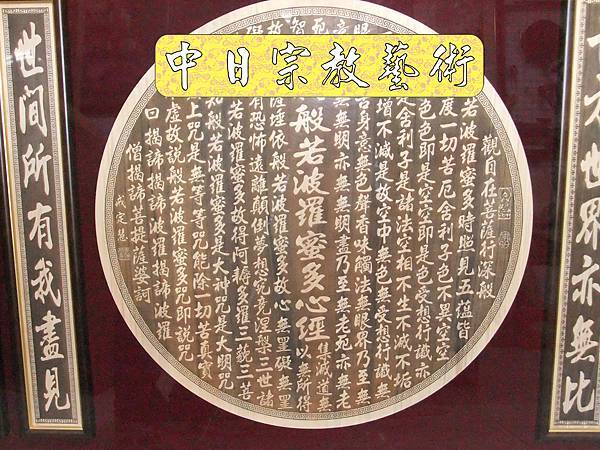 中日宗教藝術
觀自在菩薩行深般
若波羅蜜多時照見五蘊皆
度一切苦厄舍利子色不異空空
色色即是空空即是色受想行識亦
是舍利子是諸法空相不生不滅不垢
增不減是故空中無色無受想行識無
舌身意無色聲香味觸法無眼界乃至無
無無明亦無無明盡乃至無老死亦無老
集滅道無
以無所得
般若波羅蜜多心經
薩埵依般若波羅蜜多故心無罣礙無罣
有恐怖遠離顛倒夢想究竟涅槃三世諸
若波羅蜜多故得阿耨多羅三藐三菩
知般若波羅蜜多是大神咒是大明咒
上咒是無等等咒能除一切苦真實
虛故說般若波羅蜜多咒即說咒
曰揭諦揭諦波羅揭諦波羅
僧揭諦菩提薩婆訶
方世界亦無比
世間所有我盡見